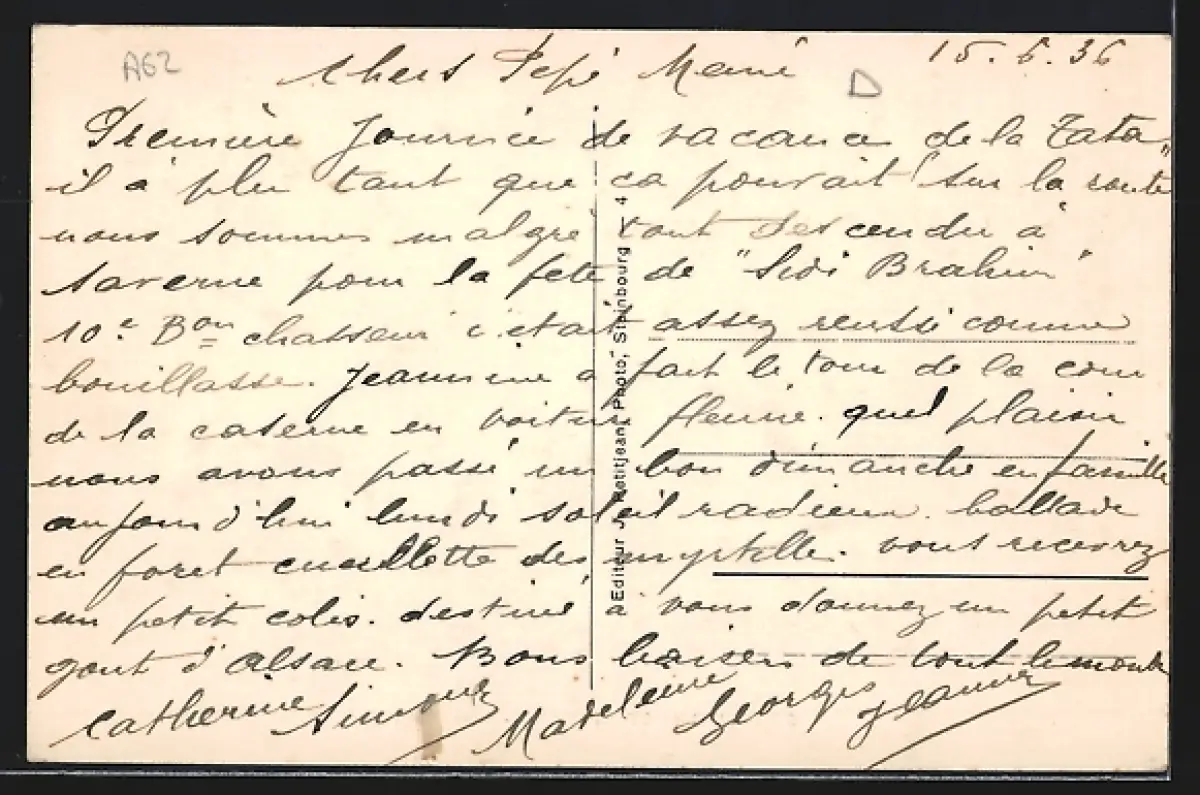 A62
15.6.36
Chers Pepé Mémé
D
Première Journée de vacance de la Tata"
il a plu tant que ca pouvait sur la route
nous sommes malgré tout descendu à
Saverne pour la fete de "Sidi Brahim"
10e Bon chasseur c'était assez reussi comme
bouillasse. Jeannine a fait le tour de la cour
de la caserne en voiture fleurie. quel plaisir
nous avons passé un bon dimanche en famille
aujourd'hui lundi soleil radieux. ballade
en foret cueillette des myrtille. vous recevrez
un petit colis. destiné à vous donnez un petit
gout d'Alsace. Bons baisers de tout le monde
Catherine Simone Madeleine Georges Jeanne
Editeur J. Petitjean, Photo, Steinbourg — 4